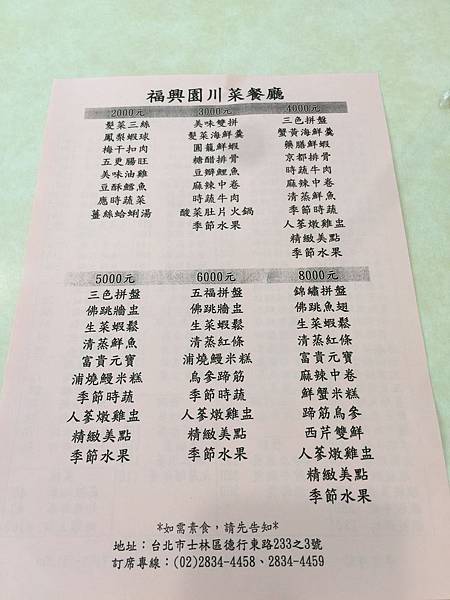 福興園川菜餐廳
2000元
髮菜三絲
鳳梨蝦球
梅干扣肉
五更腸旺
美味油雞
豆酥鱈魚
應時蔬菜
薑絲蛤蜊湯
3000元
美味雙拼
髮菜海鮮羹
圓籠鮮蝦
糖醋排骨
豆瓣鯉魚
麻辣中卷
時蔬牛肉
酸菜肚片火鍋
季節水果
4000元
三色拼盤
蟹黃海鮮羹
藥膳鮮蝦
京都排骨
時蔬牛肉
麻辣中卷
清蒸鮮魚
季節時蔬
人蔘燉雞盅
精緻美點
季節水果
5000元
三色拼盤
佛跳牆盅
生菜蝦鬆
清蒸鮮魚
富貴元寶
浦燒鰻米糕
季節時蔬
人蔘燉雞盅
精緻美點
季節水果
6000元
五福拼盤
佛跳牆盅
生菜蝦鬆
清蒸紅條
浦燒鰻米糕
烏參蹄筋
季節時蔬
人蔘燉雞盅
精緻美點
季節水果
8000元
錦繡拼盤
佛跳魚翅
生菜蝦鬆
清蒸紅條
富貴元寶
麻辣中卷
鮮蟹米糕
蹄筋烏參
西芹雙鮮
人蔘燉雞盅
精緻美點
季節水果
*如需素食，請先告知*
地址：台北市士林區德行東路233之3號
訂席專線：(02)2834-4458、2834-4459